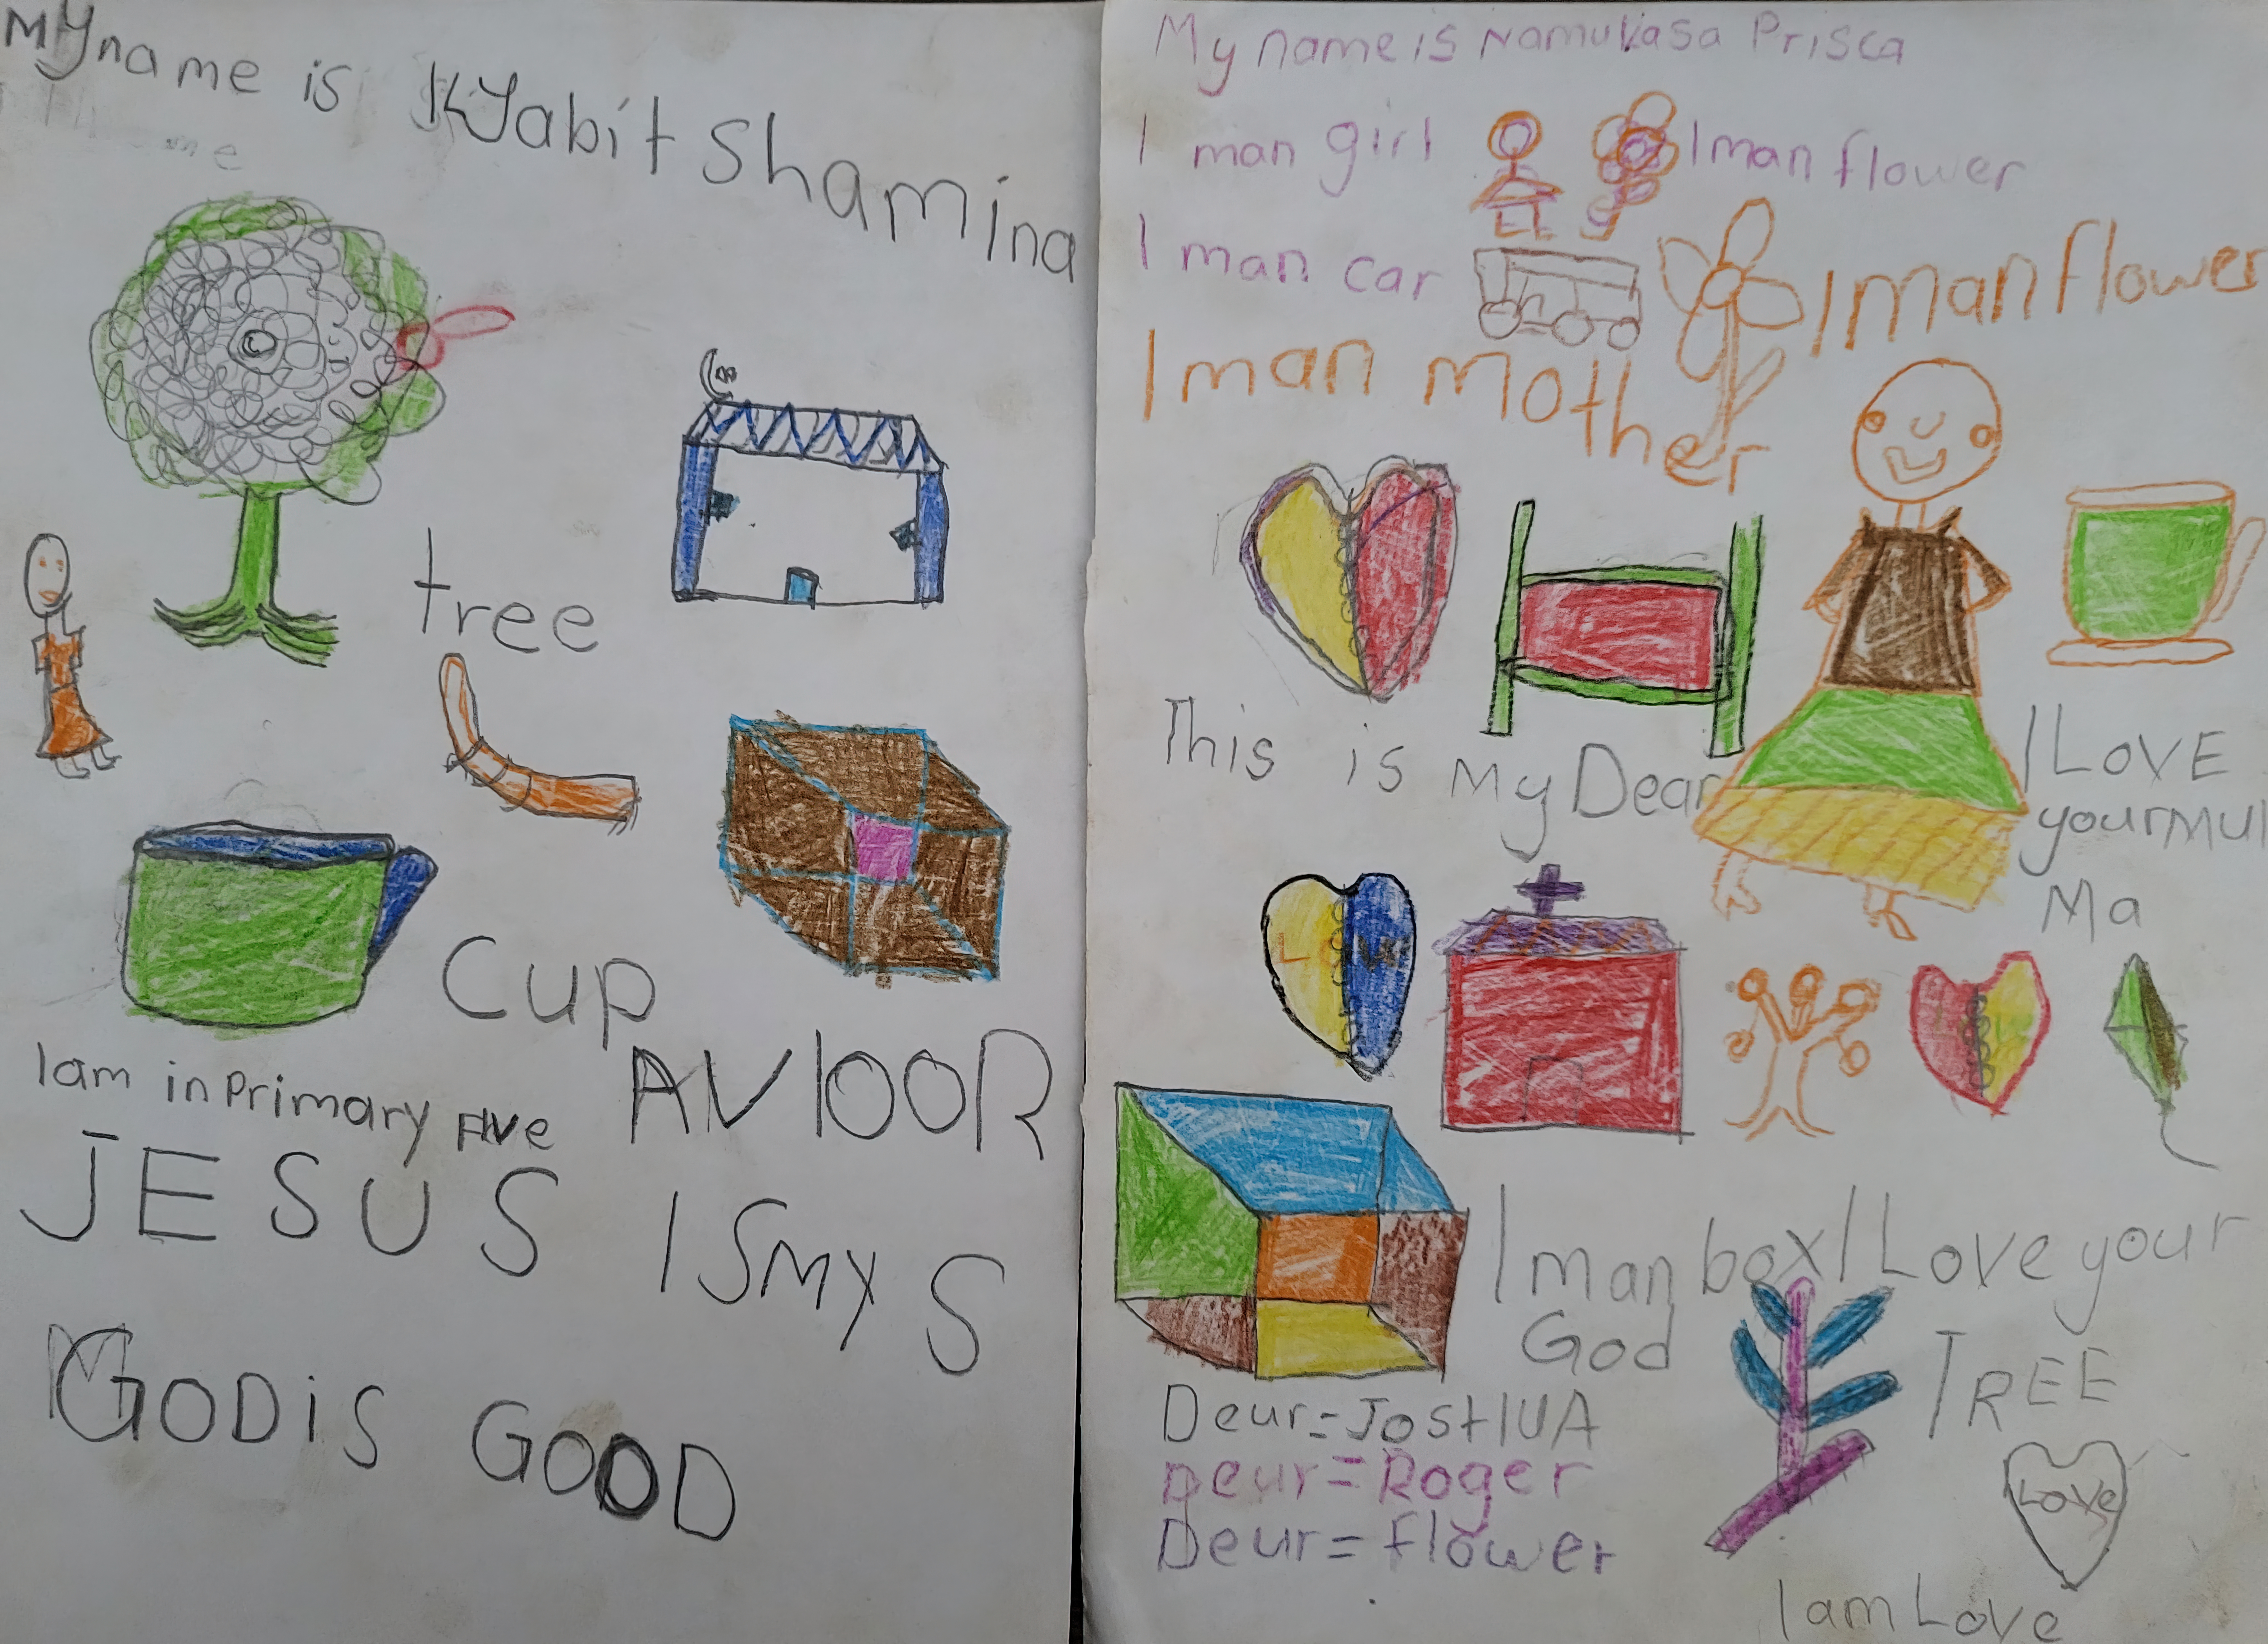 My name is Kyabit Shamina
me
tree
Cup
I am in Primary Five
AVIOOR
JESUS IS MY S
GOD is GOOD
My name is Namukasa Prisca
I man girl
I man flower
I man car
I man flower
I man Mother
This is My Dear
I LOVE
your Mul
Ma
L
I man box
I Love your
God
TREE
Deur = JOSHUA
Deur = Roger
Deur = flower
Love
I am Love